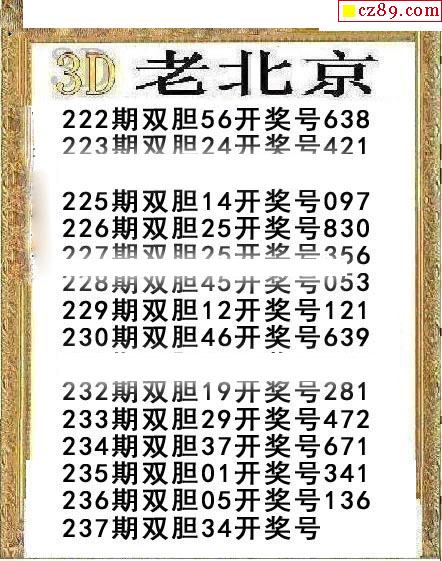 cz89.com
3D 老北京
222期双胆56开奖号638
223期双胆24开奖号421
225期双胆14开奖号097
226期双胆25开奖号830
227期双胆25开奖号356
228期双胆45开奖号053
229期双胆12开奖号121
230期双胆46开奖号639
232期双胆19开奖号281
233期双胆29开奖号472
234期双胆37开奖号671
235期双胆01开奖号341
236期双胆05开奖号136
237期双胆34开奖号